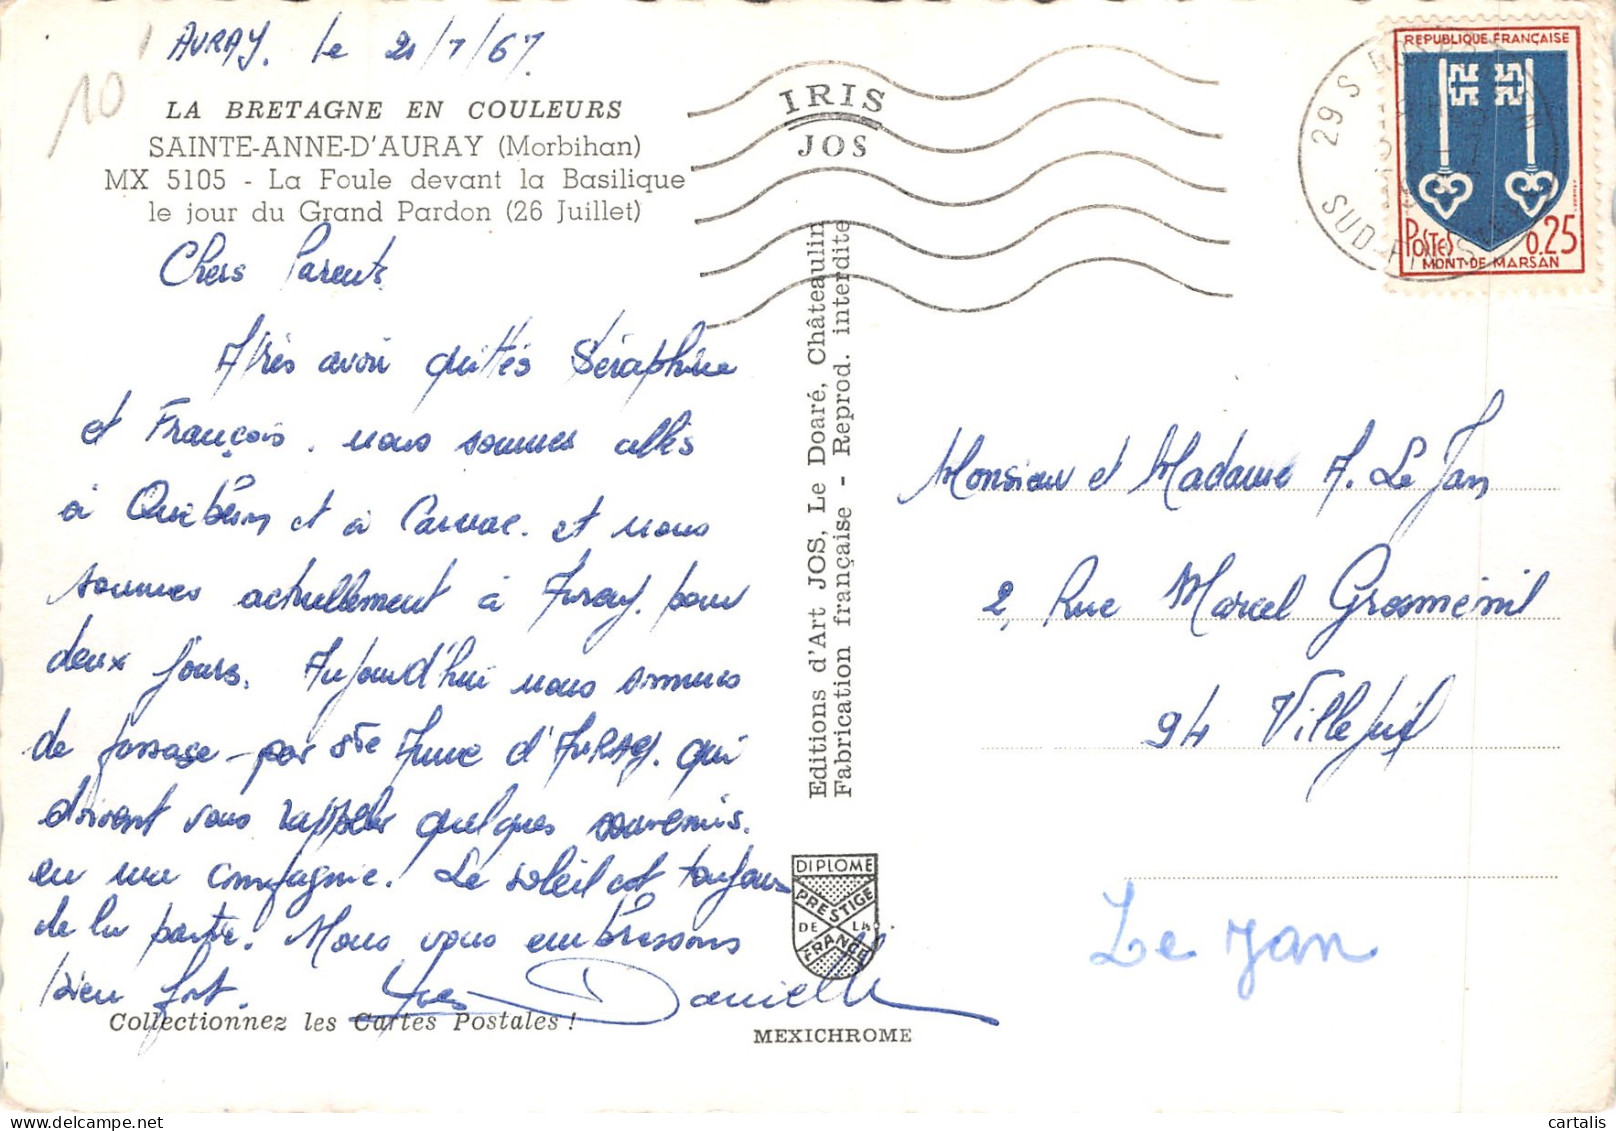 AURAY. le 21/7/67.
10
LA BRETAGNE EN COULEURS
SAINTE-ANNE-D'AURAY (Morbihan)
MX 5105 - La Foule devant la Basilique
le jour du Grand Pardon (26 Juillet)
Chers Parents
Après avoir quittés Séraphine
et François, nous sommes allés
à Quibéron et à Carnac. et nous
sommes actuellement à Auray. pour
deux jours. Aujourd'hui nous sommes
de passage par Ste Anne d'AURAY. qui
doivent vous rappeler quelques souvenirs.
en ma compagnie. Le soleil est toujours
de la partie. Nous vous embrassons
bien fort. Yves Danielle
Collectionnez les Cartes Postales !
IRIS
JOS
Editions d'Art JOS, Le Doaré, Châteaulin
Fabrication française - Reprod. interdite
DIPLOME
PRESTIGE
DE LA
FRANCE
MEXICHROME
REPUBLIQUE FRANÇAISE
POSTES 0.25
MONT-DE-MARSAN
29 S
SUD-FI
Monsieur et Madame A. Le Jan
2, Rue Marcel Grosménil
94 Villejuif
Le Jan
cartalis